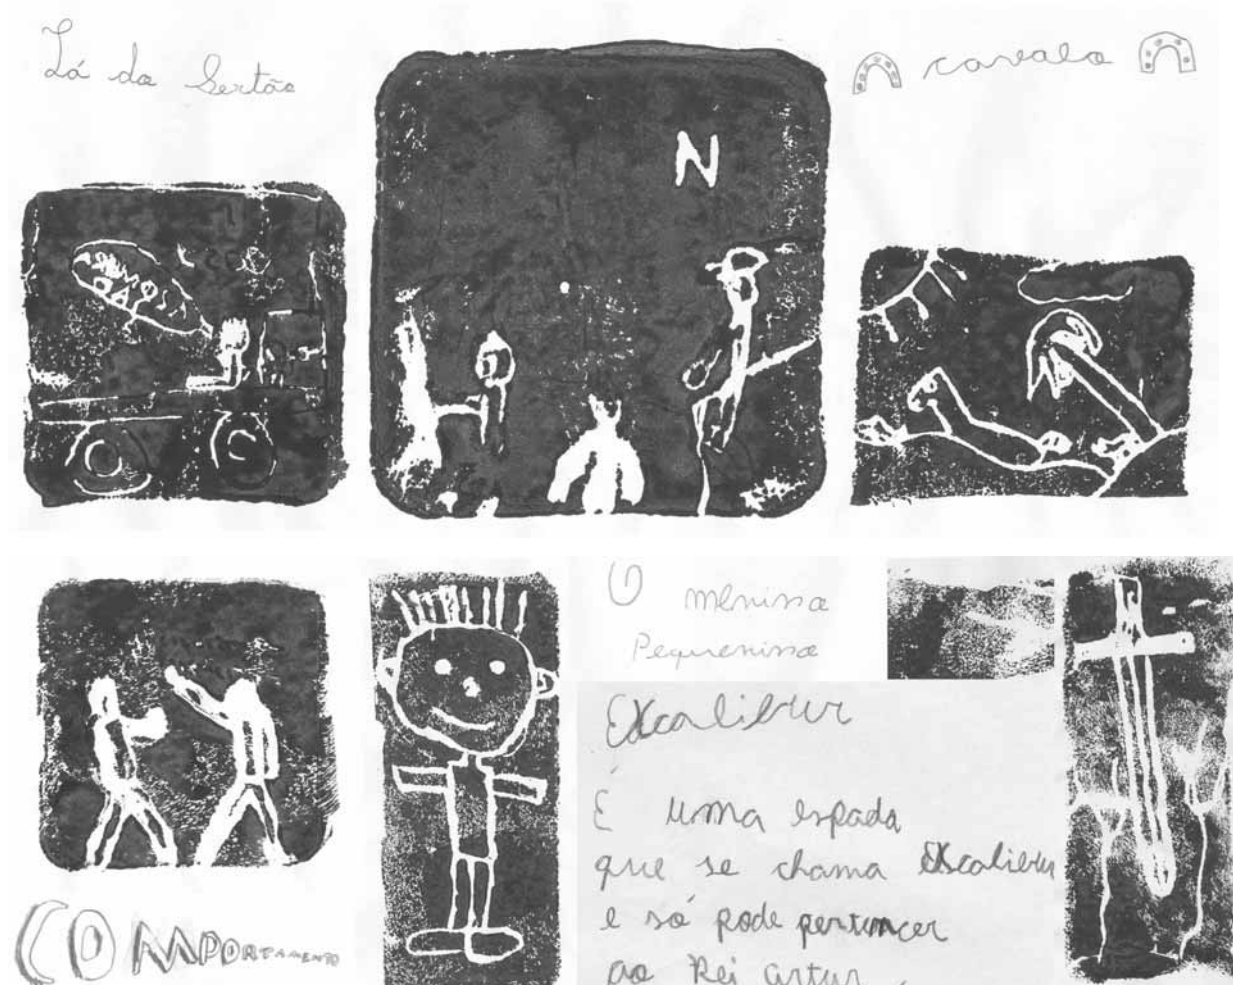 Lá do Sertão
N
cavalo
COMPORTAMENTO
O menino
Pequenino
Excalibur
É uma espada
que se chama Excalibur
e só pode pertencer
ao Rei Artur.